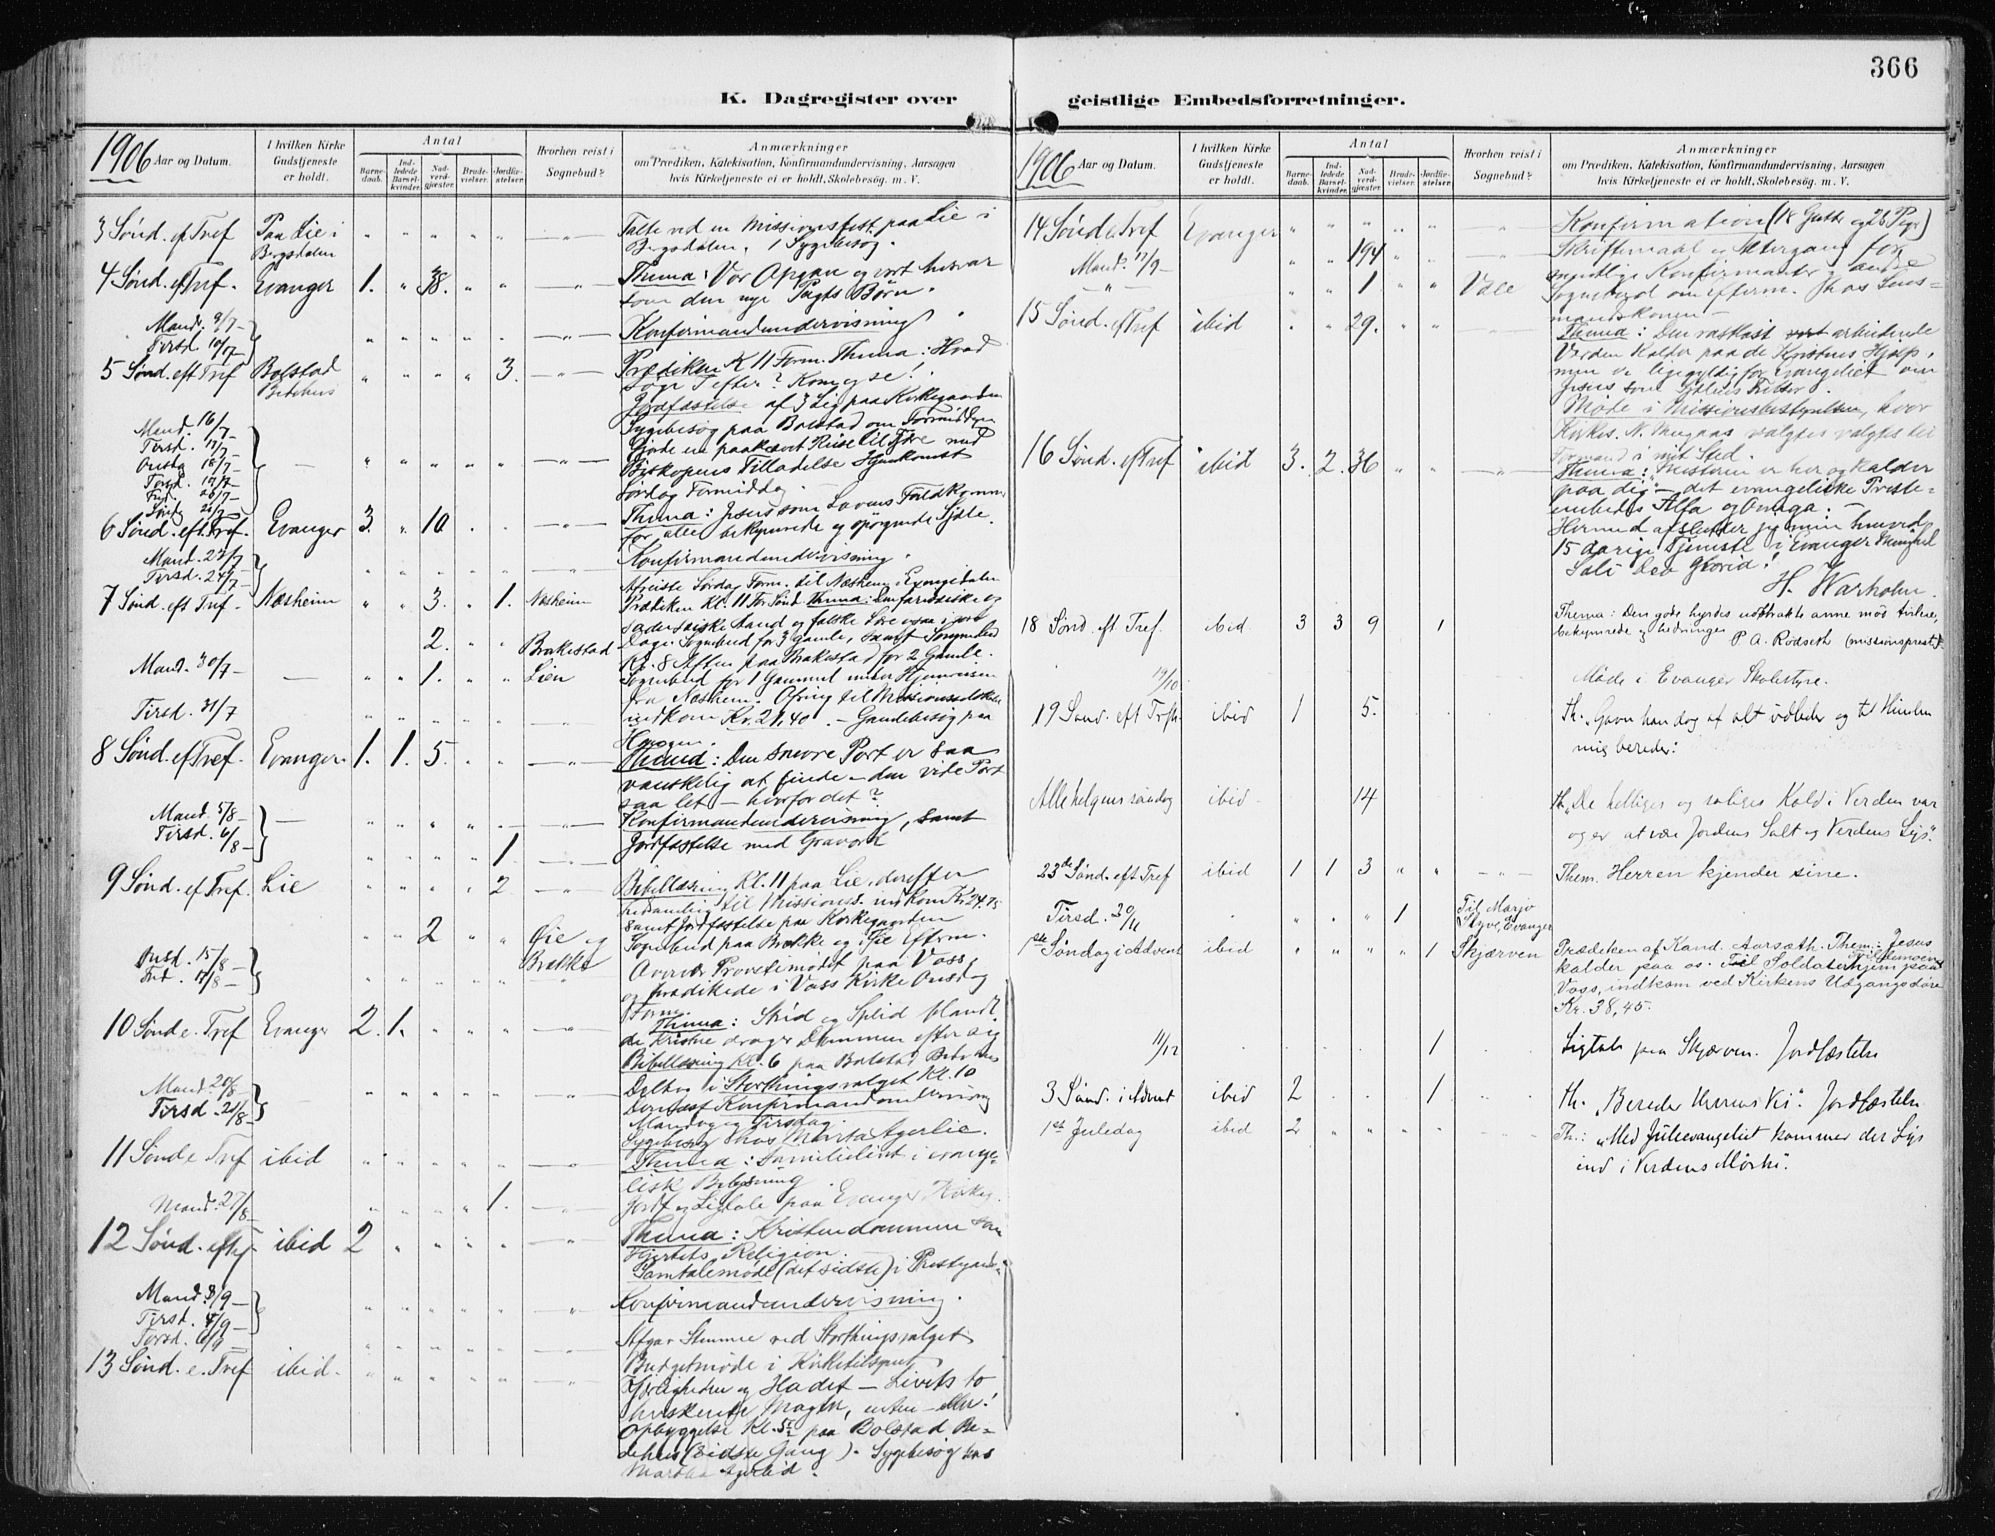 366
K. Dagregister over geistlige Embedsforretninger.
1906 Aar og Datum.
I hvilken Kirke Gudstjeneste er holdt.
Antal
Barne-daab.
Ind-ledede Barsel-kvinder.
Nad-verd-gjæster.
Brude-vielser.
Jordfæ-stelser.
Hvorhen reist i Sognebud?
Anmærkninger
om Prædiken, Katekisation, Konfirmandundervisning, Aarsagen
hvis Kirketjeneste ei er holdt, Skolebesøg. m. V.
3 Sønd. ef Tref Paa Lie i Bergsdalen " " " " " Talte ved en Missionsfest paa Lie i
Bergsdalen. 1 Sygebesøg.
4 Sønd. ef Tref. Evanger 1. " 38. " " Thema: Vor Opgav og vort Ansvar
som den nye Pagts Børn.
Mand. 9/7
Tirsd. 10/7 Konfirmandundervisning
5 Sønd. eft Tref Bolstad Bedehus " " " " 3. Prædiken Kl 11 Form. Thema: Hvad
søge I efter? Kom og se!
Jordfæstelse af 3 Lig paa Kirkegaarden
Sygebesøg paa Bolstad om Formiddagen
Mand 16/7
Tirsd. 17/7
Onsdg 18/7
Torsd. 19/7
Fred. 20/7
Lørdg 21/7
Gjorde en paakrævet Reise til Føre med
Biskopens Tilladelse Hjemkomst
Lørdag Formiddag.
6 Sønd. eft. Tref. Evanger 3. " 10. Thema: Jesus som Lovens Forldkommer
for alle bekymrede og spørgende Sjæle.
Mand. 23/7
Tirsd. 24/7 Konfirmandundervisning.
7 Sønd. eft Tref. Næsheim " " 3. " 1. Næsheim Afreiste Lørdag Form. til Næsheim i Exingedalen
Prædiken Kl. 11 For Sønd Thema: Den farisæiske og
sadusæiske Aand og falske Lære ogsaa i vore
2. " " Brakestad Dage. Sognebud for 3 Gamle, samt Sognebud
Kl. 8 Aften paa Brakestad for 2 Gamle.
Mand. 30/7 — " " 1. " " Lien Sognebud for 1 Gammel under Hjemreisen
fra Næsheim. Ofring til Missionsselskabet
Tirsd. 31/7 indkom Kr. 21,40. — Gaardebesøg paa
8 Sønd. ef Tref. Evanger. 1. 1. 5. " " Thema: Den snevre Port er saa
vanskelig at finde — den vide Port
saa let — hvorfor det?
Mand 5/8
Tirsd. 6/8 Konfirmandundervisning, samt
1 Jordfæstelse med Gravord
9 Sønd. ef Tref. Lie " " " " 2 Bibellæsning Kl. 11 paa Lie, derefter
Indsamling til Missionss. indkom Kr 24.75
samt Jordfæstelse paa Kirkegaarden
2 " " Øie og Brakke Sognebud paa Brakke og Øie Efterm.
Onsd. 15/8
Fred. 17/8 Overvær Provstimødet paa Voss,
og prædikede i Voss Kirke Onsdag
Form.
10 Sønd e. Tref Evanger 2. 1. Thema: Strid og Splid blandt
de Kristne drager Dommen efter sig
Bibellæsning Kl. 6 paa Bolstad Bedehus
Mand 20/8
Tirsd. 21/8 Deltog i Storthingsvalget Kl. 10
Dernæst Konfirmandundervisning
Mandag og Tirsdag.
Sygebesøg hos Martha Agerlie.
11 Sønd e Tref ibid Thema: Familielivet i evange-
lisk Belysning
Mand. 27/8 1. Jordf og Ligtale paa Evanger Kirkeg.
12 Sønd. eft Tref ibid 2 Thema: Kristendommen som
Hjertets Religion.
Samtalemøde (det sidste) i Prestegaarden
Mand. 3/9
Tirsd. 4/9
Torsd. 6/9 Konfirmandundervisning.
Afgav Stemme ved Storthingsvalget
13 Sønd. e. Tref ibid. Budgetmøde i Kirketilsynet
Kjærligheden og Hadet — Livets to
hviskende Magter, enten — eller!
Opbyggelse Kl. 5 1/2 paa Bolstad Be-
dehus (sidste Gang). Sygebesøg hos
Martha Agerlid.
1906 Aar og Datum.
I hvilken Kirke Gudstjeneste er holdt.
Antal
Barne-daab.
Ind-ledede Barsel-kvinder.
Nad-verd-gjæster.
Brude-vielser.
Jordfæ-stelser.
Hvorhen reist i Sognebud?
Anmærkninger
om Prædiken, Katekisation, Konfirmandundervisning, Aarsagen
hvis Kirketjeneste ei er holdt, Skolebesøg. m. V.
14 Sønd e Tref Evanger " " " " " Konfirmation (18 Gutter og 26 Piger)
Mand. 17/9 " " 194 Skriftemaal og Altergang for
samtlige Konfirmanter og andre
" " 1 " " Vole Sognebud om efterm. hos Lens-
mandskonen —
15 Sønd. ef Tref ibid " " 29. Thema: Den raskløst arbeidende
Verden kalder paa de Kristnes Hjælp,
men er ligegyldig for Evangeliet om
Jesus som Sjælens Frelser.
Møde i Missionsbestyrelsen, hvor
Kirkes. N. Mugaas valgtes valgtes til
Formand i mit Sted.
16 Sønd. ef Tref ibid 3. 2. 36 Thema: "Mesteren er her og kalder
paa dig" — det evangeliske Preste-
embedes Alfa og Omega: —
Hermed afslutter jeg min henved
15 aarige Tjeneste i Evanger Menighed
Soli Deo Gloria!
H. Warholm.
18 Sønd. eft Tref. ibid 3 3 9 1 Thema: Den gode hyrdes udstrakte arme mod tvilere,
bekymrede og hedninger P. A. Rødseth (missionsprest)
19/10 Møde i Evanger Skolestyre.
19 Sønd. eft Trefh. ibid 1 5. Th. "Gavn han dog af alt udleder og til Himlen
mig bereder."
Alle helgens søndag ibid 14 Th. "De helliges og saliges Kald i Verden var
og er at være Jordens Salt og Verdens Lys."
23de Sønd. eft Tref ibid 1 1 3 " " Them. Herren kjender sine.
Tirsd. 20/11 . " " " 1 Til Marjo Styve, Evanger
1ste Søndag i Advent ibid " " " " 1 Skjærven Prædiken af Kand. Aarsæth. Them: Jesus
kalder paa os. Til Soldaterhjem paa Tvildemoen
Voss, indkom ved Kirkens Udgangsdøre
Kr. 38,45.
11/12 1 Ligtale paa Skjærven. Jordfæstelse
3 Sønd. i Advent ibid 2 1 Th. "Bereder Herrens Vei". Jordfæstelse
1ste Juledag ibid 2 Th.: "Med Juleevangeliet kommer der Lys
ind i Verdens Mørke."